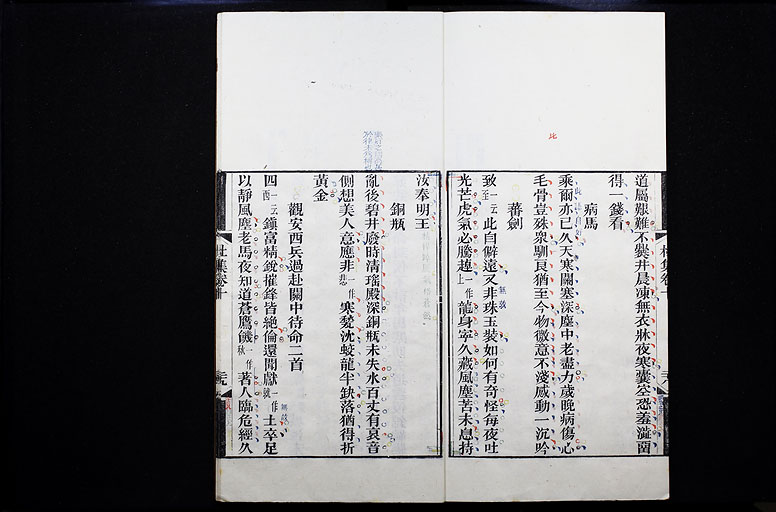 道屬艱難不爨井晨凍無衣牀夜寒囊空恐羞澁留
得一錢看
病馬
乘爾亦已久天寒關塞深塵中老盡力歲晚病傷心
毛骨豈殊衆馴良猶至今物微意不淺感動一沉吟
蕃劍
致一云至此自僻遠又非珠玉裝如何有奇怪每夜吐
光芒虎氣必騰趠一作上龍身寜久藏風塵苦未息持
汝奉明王
銅瓶
亂後碧井廢時清瑤殿深銅瓶未失水百丈有哀音
側想美人意應非一作悲寒甃沈蛟龍半缺落猶得折
黃金
觀安西兵過赴關中待命二首
四一云西鎭富精銳摧鋒皆絶倫還聞獻一作就士卒足
以靜風塵老馬夜知道蒼鷹饑一作秋著人臨危經久
杜集卷十